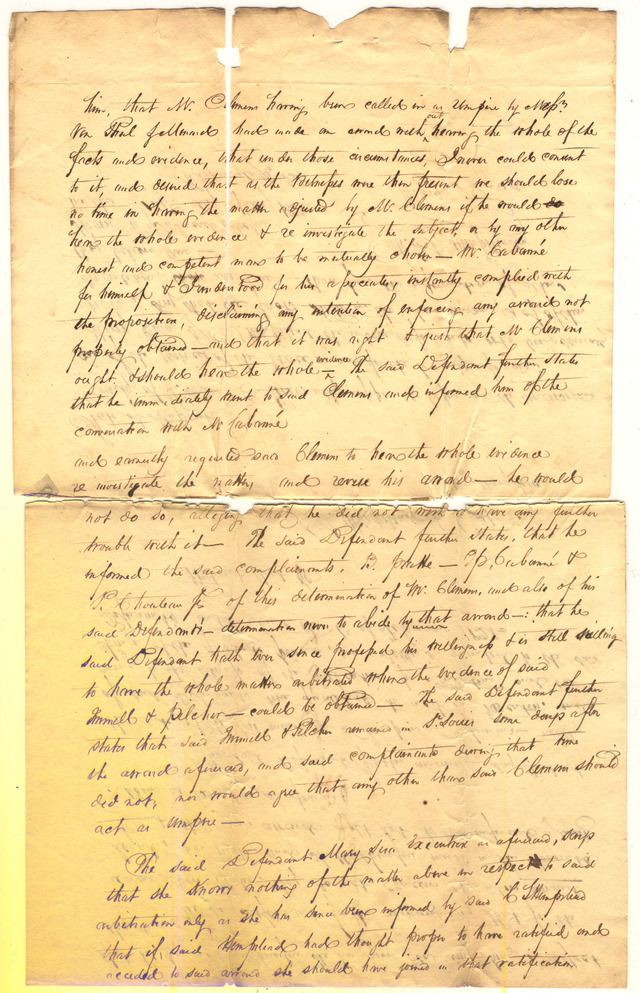 him, that Mr. Clemens having been called in as Umpire by Messrs
Von Phul & Immel had made an award without hearing the whole of the
facts and evidence, that under those circumstances, I never could consent
to it, and desired that as the Witnesses were then present we should lose
no time in having the matter adjusted by Mr. Clemens if he would
hear the whole evidence & re investigate the subject, or by any other
honest and competent man to be mutually chosen — Mr Cabanné
for himself & I understood for his associates, instantly complied with
the proposition, disclaiming any intention of enforcing any award not
properly obtained — and that it was right & just that Mr Clemens
ought & should hear the whole evidence — The said Defendant further states
that he immediately went to said Clemens and informed him of the
conversation with Mr Cabanné
and earnestly requested said Clemens to hear the whole evidence
re investigate the matter, and revise his award — he would
not do so, alleging that he did not wish to have any further
trouble with it — The said Defendant further states, that he
informed the said complainants, B. Pratte — J. P. Cabanné &
P. Chouteau Jr of this determination of Mr. Clemens, and also of his
said Defendants — determination never to abide by that award —: that he
said Defendant hath ever since professed his willingness & is still willing
to have the whole matter arbitrated when the evidence of said
Immell & Pilcher — could be obtained — The said Defendant further
states that said Immell & Pilcher remained in St. Louis some days after
the award aforesaid, and said complainants during that time
did not, nor would agree that any other than said Clemens should
act as Umpire —
The said Defendant Mary Lisa Executrix as aforesaid, says
that she knows nothing of the matter above in respect to said
arbitration only as she has since been informed by said C S Hempstead
that if said Hempstead had thought proper to have ratified and
acceded to said award she should have joined in that ratification